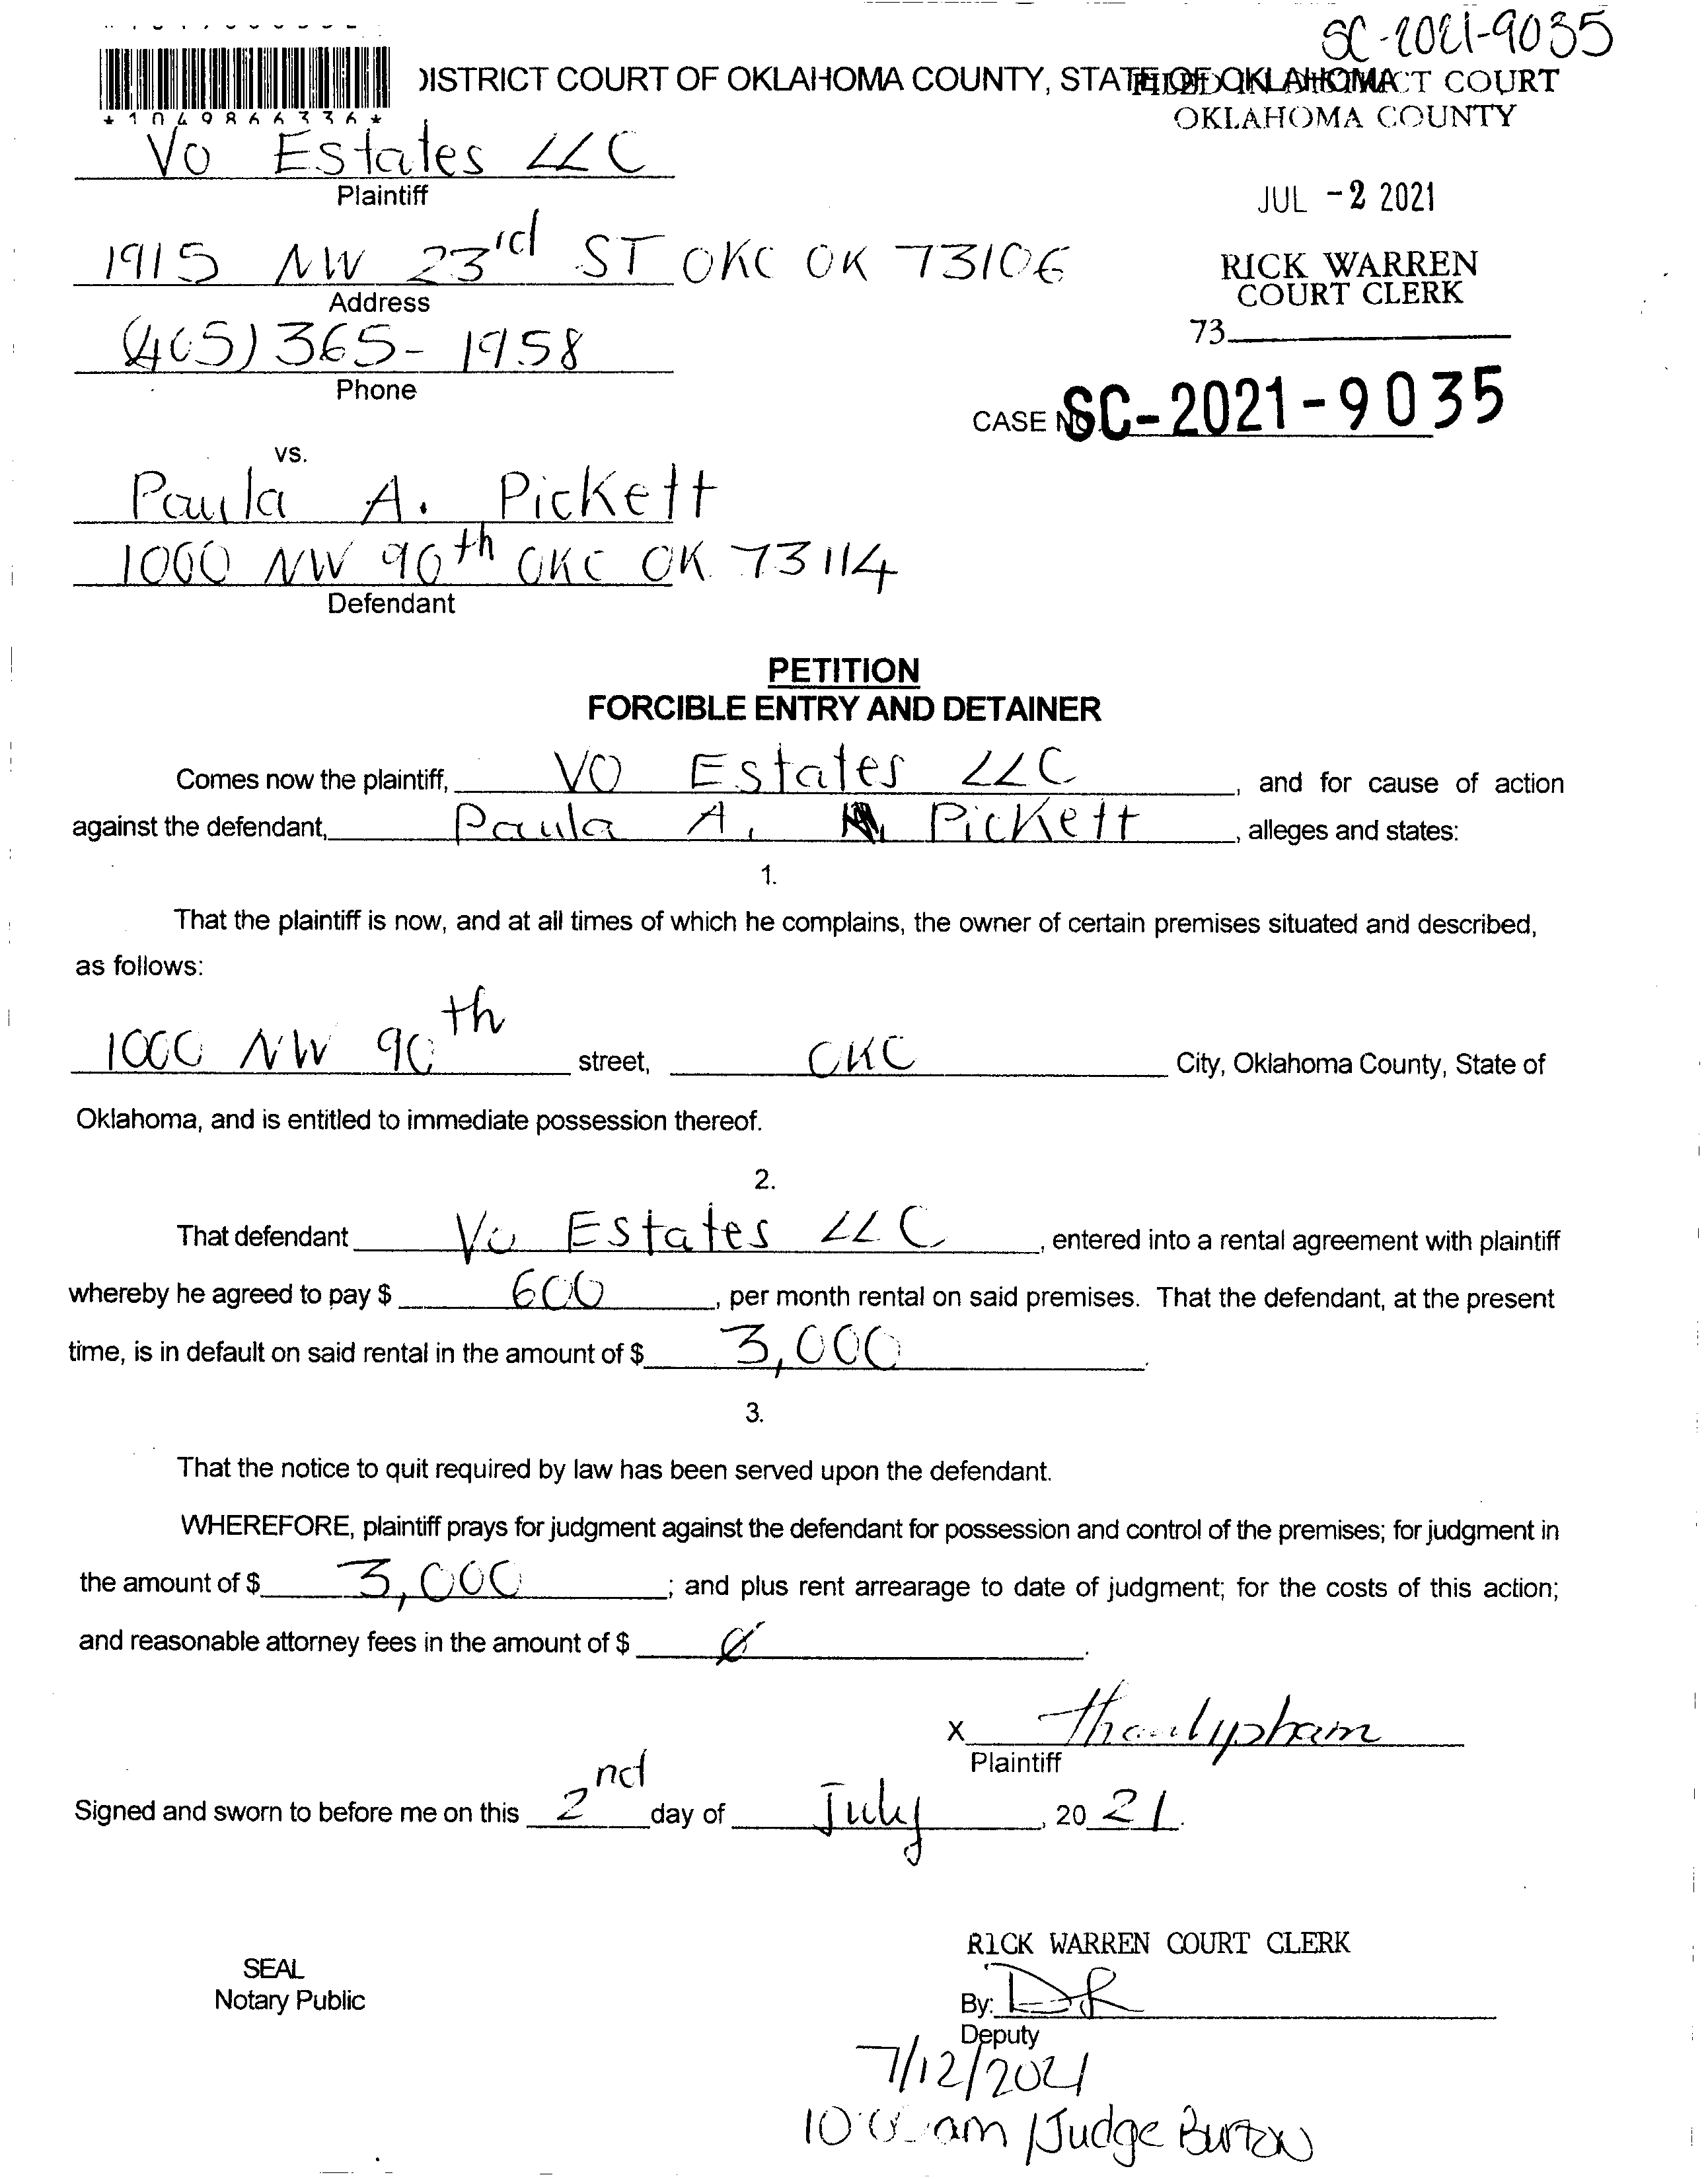 SC-2021-9035
DISTRICT COURT OF OKLAHOMA COUNTY, STATE OF OKLAHOMA
FILED IN DISTRICT COURT
OKLAHOMA COUNTY
*1049866336*
Vo Estates LLC
Plaintiff
JUL -2 2021
1915 NW 23rd ST OKC OK 73106
Address
RICK WARREN
COURT CLERK
(405) 365-1958
Phone
73
CASE NO. SC-2021-9035
vs.
Paula A. Pickett
1000 NW 90th OKC OK 73114
Defendant
PETITION
FORCIBLE ENTRY AND DETAINER
Comes now the plaintiff, VO Estates LLC, and for cause of action
against the defendant, Paula A. Pickett, alleges and states:
1.
That the plaintiff is now, and at all times of which he complains, the owner of certain premises situated and described,
as follows:
1000 NW 90th street, OKC City, Oklahoma County, State of
Oklahoma, and is entitled to immediate possession thereof.
2.
That defendant Vo Estates LLC, entered into a rental agreement with plaintiff
whereby he agreed to pay $ 600, per month rental on said premises. That the defendant, at the present
time, is in default on said rental in the amount of $ 3,000.
3.
That the notice to quit required by law has been served upon the defendant.
WHEREFORE, plaintiff prays for judgment against the defendant for possession and control of the premises; for judgment in
the amount of $ 3,000; and plus rent arrearage to date of judgment; for the costs of this action;
and reasonable attorney fees in the amount of $ Ø.
X
Plaintiff
Signed and sworn to before me on this 2nd day of July, 2021.
RICK WARREN COURT CLERK
SEAL
Notary Public
By: DR
Deputy
7/12/2021
10:00 am / Judge Burton